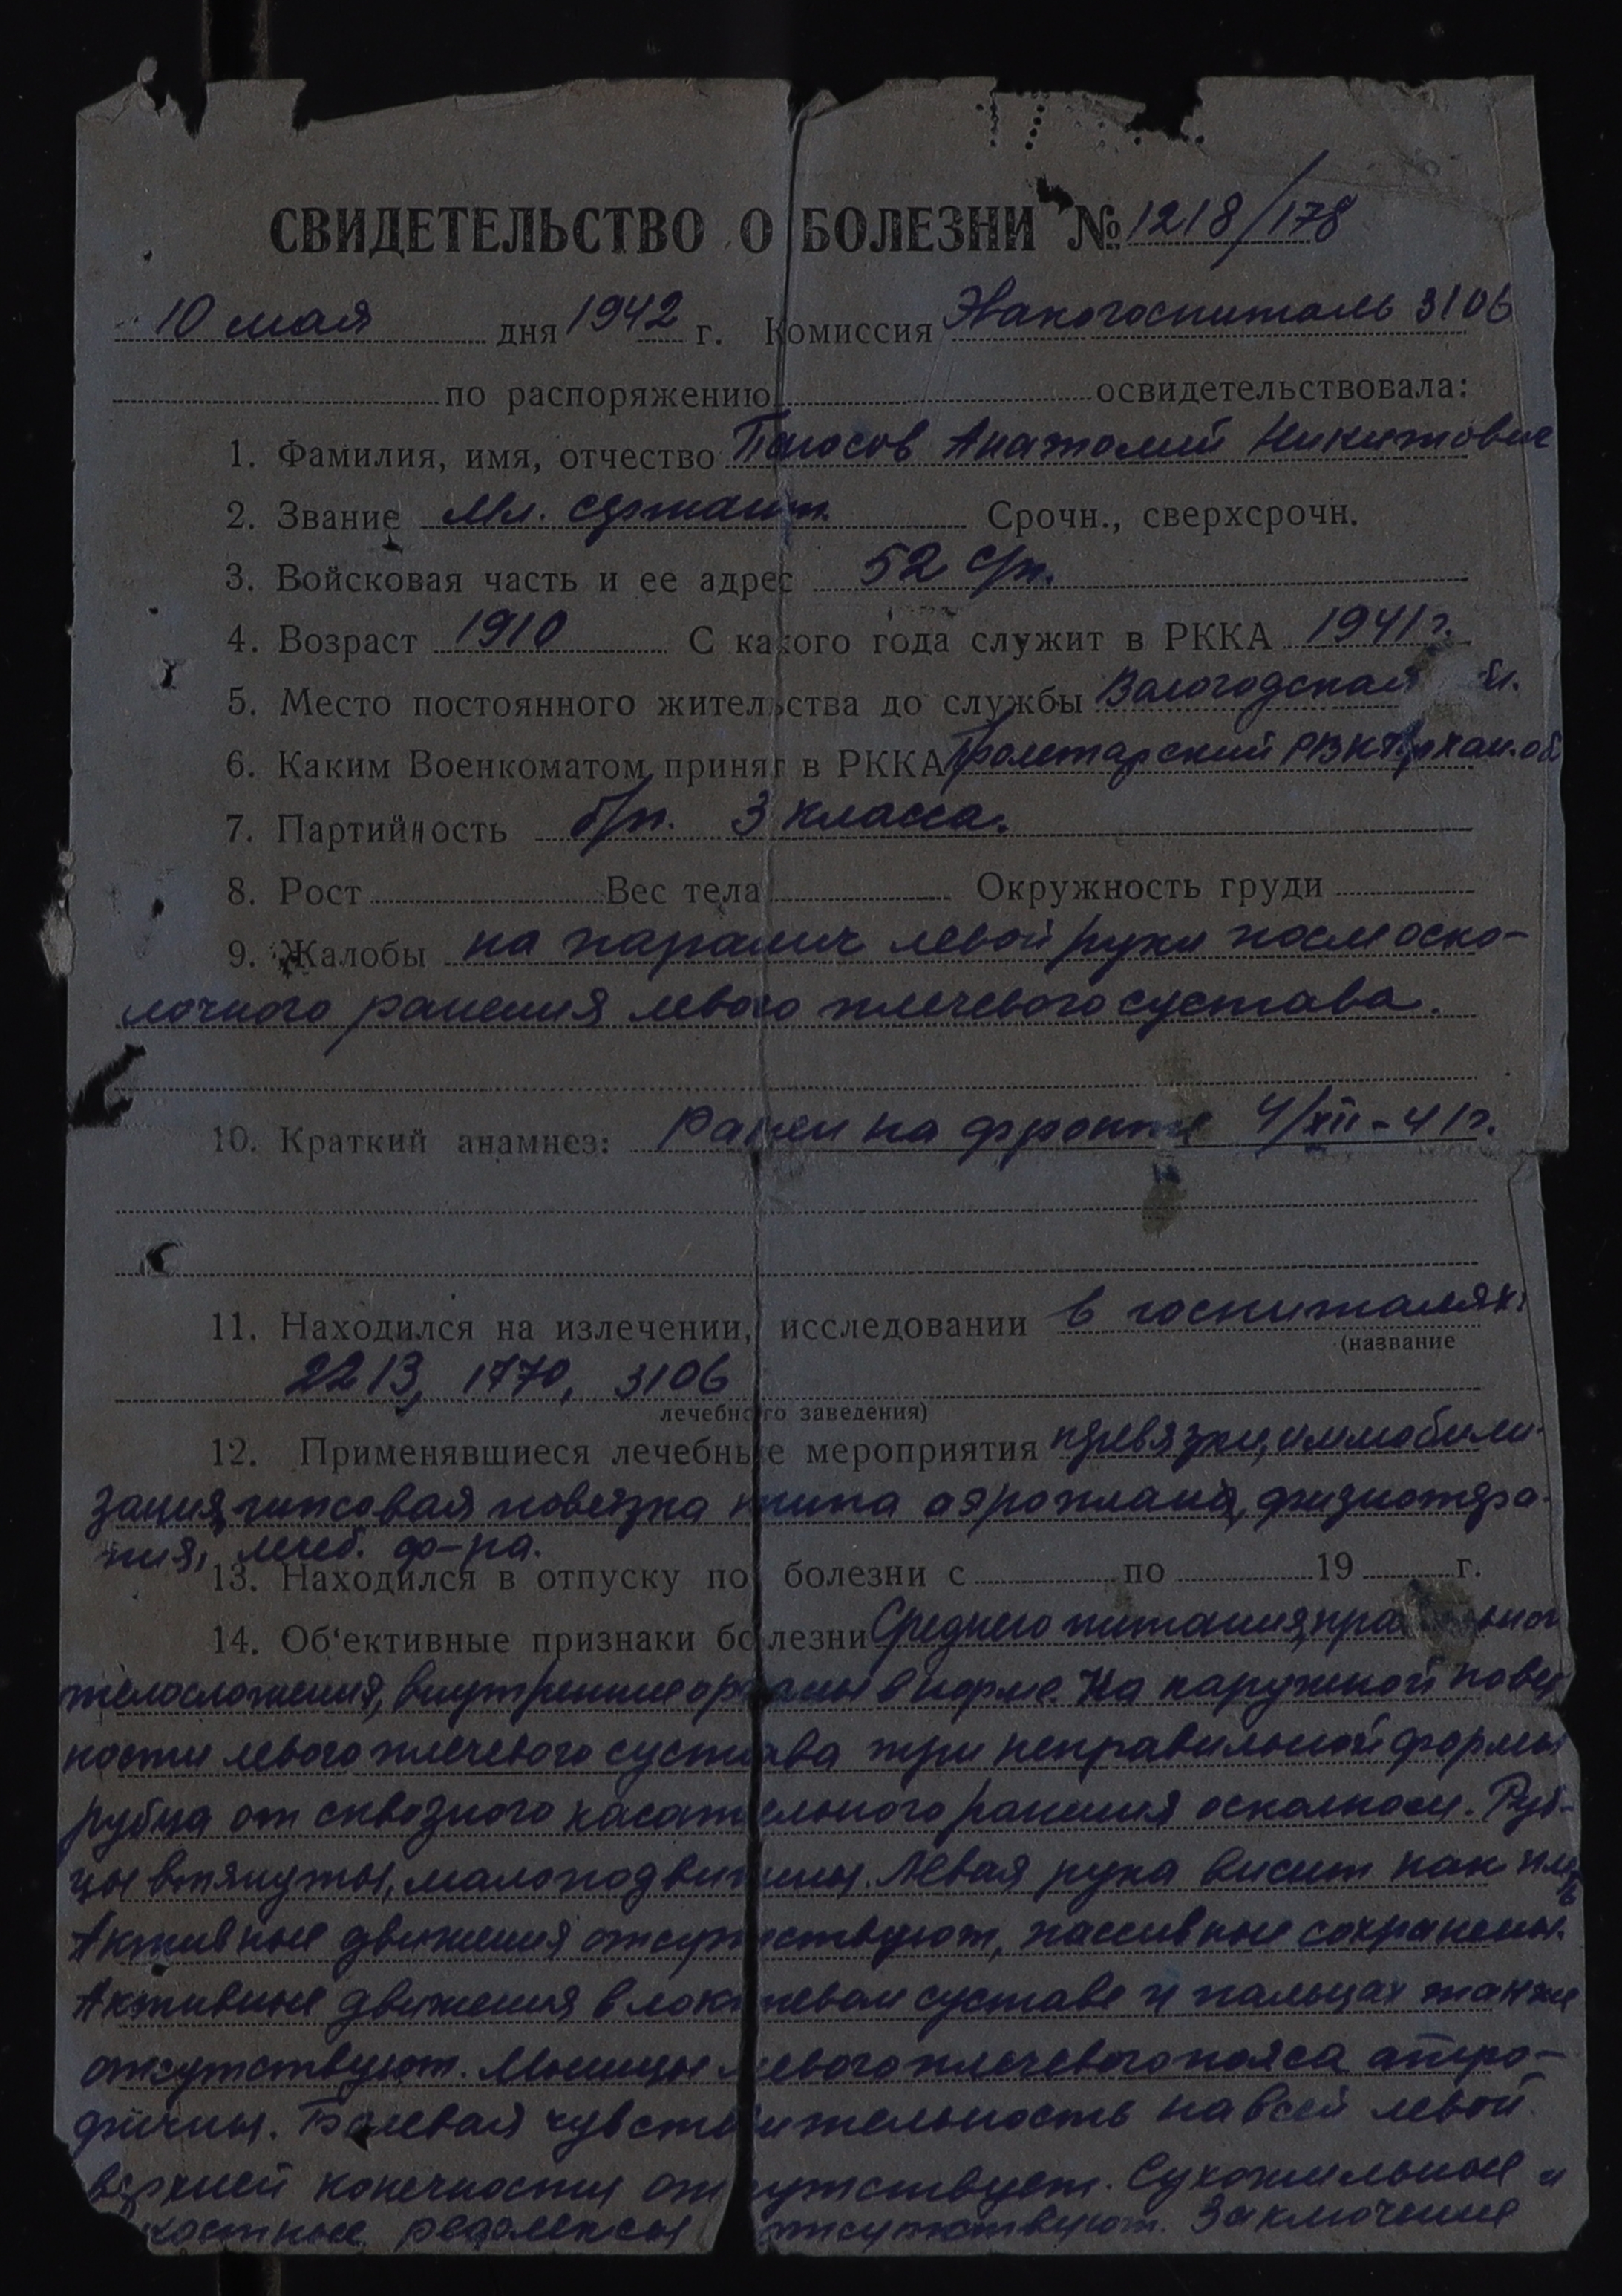 СВИДЕТЕЛЬСТВО О БОЛЕЗНИ № 1218/178
10 мая дня 1942 г. Комиссия Эвакогоспиталь 3106
по распоряжению освидетельствовала:
1. Фамилия, имя, отчество Анатолий Никитович
2. Звание Мл. сержант. Срочн., сверхсрочн.
3. Войсковая часть и ее адрес 52 с/п.
4. Возраст 1910 С какого года служит в РККА 1941 г.
5. Место постоянного жительства до службы Вологодская
6. Каким Военкоматом принят в РККА Пролетарский РВК
7. Партийность б/п. 3 класса.
8. Рост Вес тела Окружность груди
9. Жалобы на паралич левой руки после оско-
лочного ранения левого плечевого сустава.
10. Краткий анамнез: Ранен на фронте 4/XII-41 г.
11. Находился на излечении, исследовании в госпиталях:
(название
2213, 1770, 3106
лечебного заведения)
12. Применявшиеся лечебные мероприятия перевязки, иммобили-
зация, гипсовая повязка типа аэроплана, физиотера-
пия, леч. ф-ра.
13. Находился в отпуску по болезни с по 19 г.
14. Об'ективные признаки болезни Среднего питания,
телосложения, внутренние органы в норме. На наружной повер
ности левого плечевого сустава три неправильной формы
рубца от сквозного касательного ранения осколком. Руб-
цы втянуты, малоподвижны. Левая рука висит как плеть
Активные движения отсутствуют, пассивные сохранены.
Активные движения в локтевом суставе и пальцах также
отсутствуют. Мышцы левого плечевого пояса атро-
фичны. Болевая чувствительность на всей левой
верхней конечности отсутствует. Сухожильные и
костные рефлексы отсутствуют. Заключение